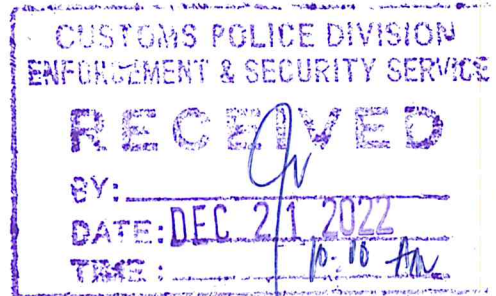 CUSTOMS POLICE DIVISION
ENFORCEMENT & SECURITY SERVICE
RECEIVED
BY:
DATE: DEC 21 2022
TIME: 10:10 AM